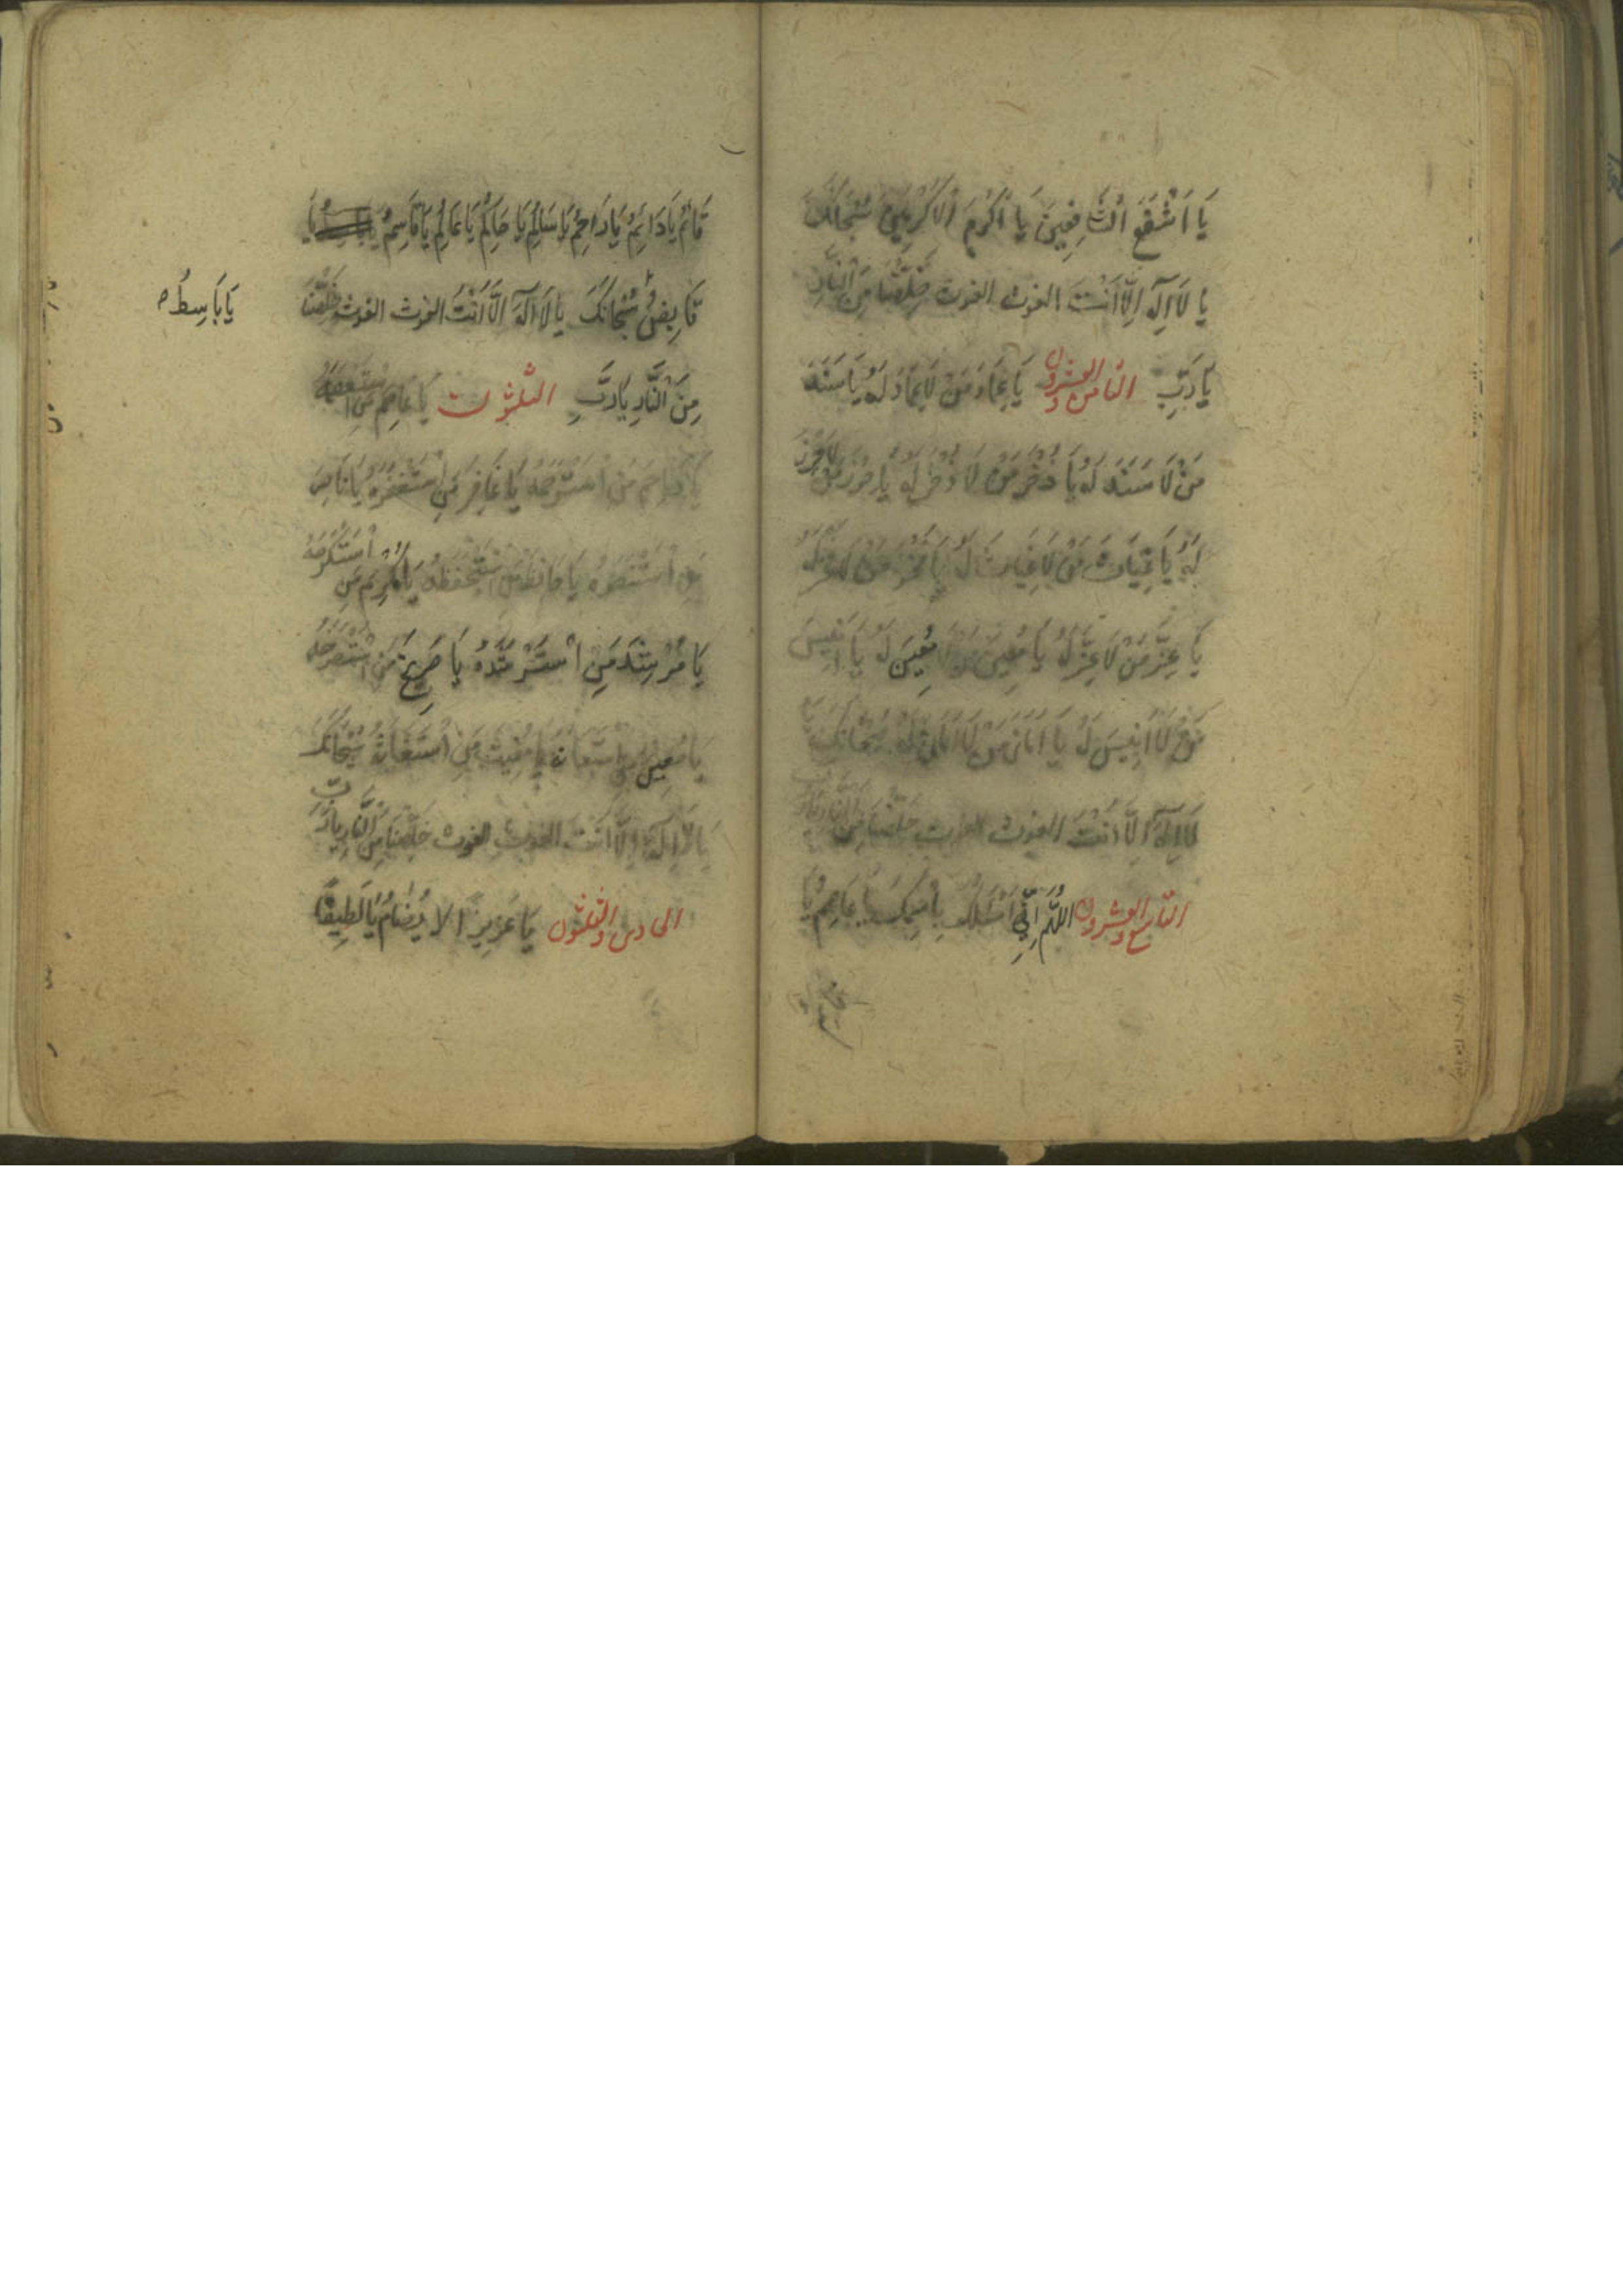 يَا اَشْفَعَ الشَّافِعِينَ يَا اَكْرَمَ الْاَكْرَمِينَ سُبْحَانَكَ
يا لَا اِلٰهَ اِلَّا اَنْتَ الغوث الغوث خَلِّصْنَا مِنَ النَّارِ
يَا رَبِّ الثامن والعشرون يَا عِمَادَ مَنْ لَا عِمَادَ لَهُ يَا سَنَدَ
مَنْ لَا سَنَدَ لَهُ يَا ذُخْرَ مَنْ لَا ذُخْرَ لَهُ يَا حِرْزَ مَنْ لَا حِرْزَ
لَهُ يَا غِيَاثَ مَنْ لَا غِيَاثَ لَهُ يَا فَخْرَ مَنْ لَا فَخْرَ لَهُ
يَا عِزَّ مَنْ لَا عِزَّ لَهُ يَا مُعِينَ مَنْ لَا مُعِينَ لَهُ يَا اَنِيسَ
مَنْ لَا اَنِيسَ لَهُ يَا اَمَانَ مَنْ لَا اَمَانَ لَهُ سُبْحَانَكَ يَا
لَا اِلٰهَ اِلَّا اَنْتَ الغوث الغوث خَلِّصْنَا مِنَ النَّارِ يَا رَبِّ
التاسع والعشرون اللّٰهُمَّ اِنِّي اَسْئَلُكَ بِاسْمِكَ يَا عَاصِمُ يَا
قَائِمُ يَا دَائِمُ يَا رَاحِمُ يَا سَالِمُ يَا حَاكِمُ يَا عَالِمُ يَا قَاسِمُ يَا
قَابِضُ سُبْحَانَكَ يا لَا اِلٰهَ اِلَّا اَنْتَ الغوث الغوث خَلِّصْنَا
يَا بَاسِطُ
مِنَ النَّارِ يَا رَبِّ الثلثون يَا عَاصِمَ مَنِ اسْتَعْصَمَهُ
يَا رَاحِمَ مَنِ اسْتَرْحَمَهُ يَا غَافِرَ مَنِ اسْتَغْفَرَهُ يَا نَاصِرَ
مَنِ اسْتَنْصَرَهُ يَا حَافِظَ مَنِ اسْتَحْفَظَهُ يَا مُكْرِمَ مَنِ اسْتَكْرَمَهُ
يَا مُرْشِدَ مَنِ اسْتَرْشَدَهُ يَا صَرِيخَ مَنِ اسْتَصْرَخَهُ
يَا مُعِينَ مَنِ اسْتَعَانَهُ يَا مُغِيثَ مَنِ اسْتَغَاثَهُ سُبْحَانَكَ
يَا لَا اِلٰهَ اِلَّا اَنْتَ الغوث الغوث خَلِّصْنَا مِنَ النَّارِ يَا رَبِّ
الحادى والثلثون يَا عَزِيزًا لا يُضَامُ يَا لَطِيفًا